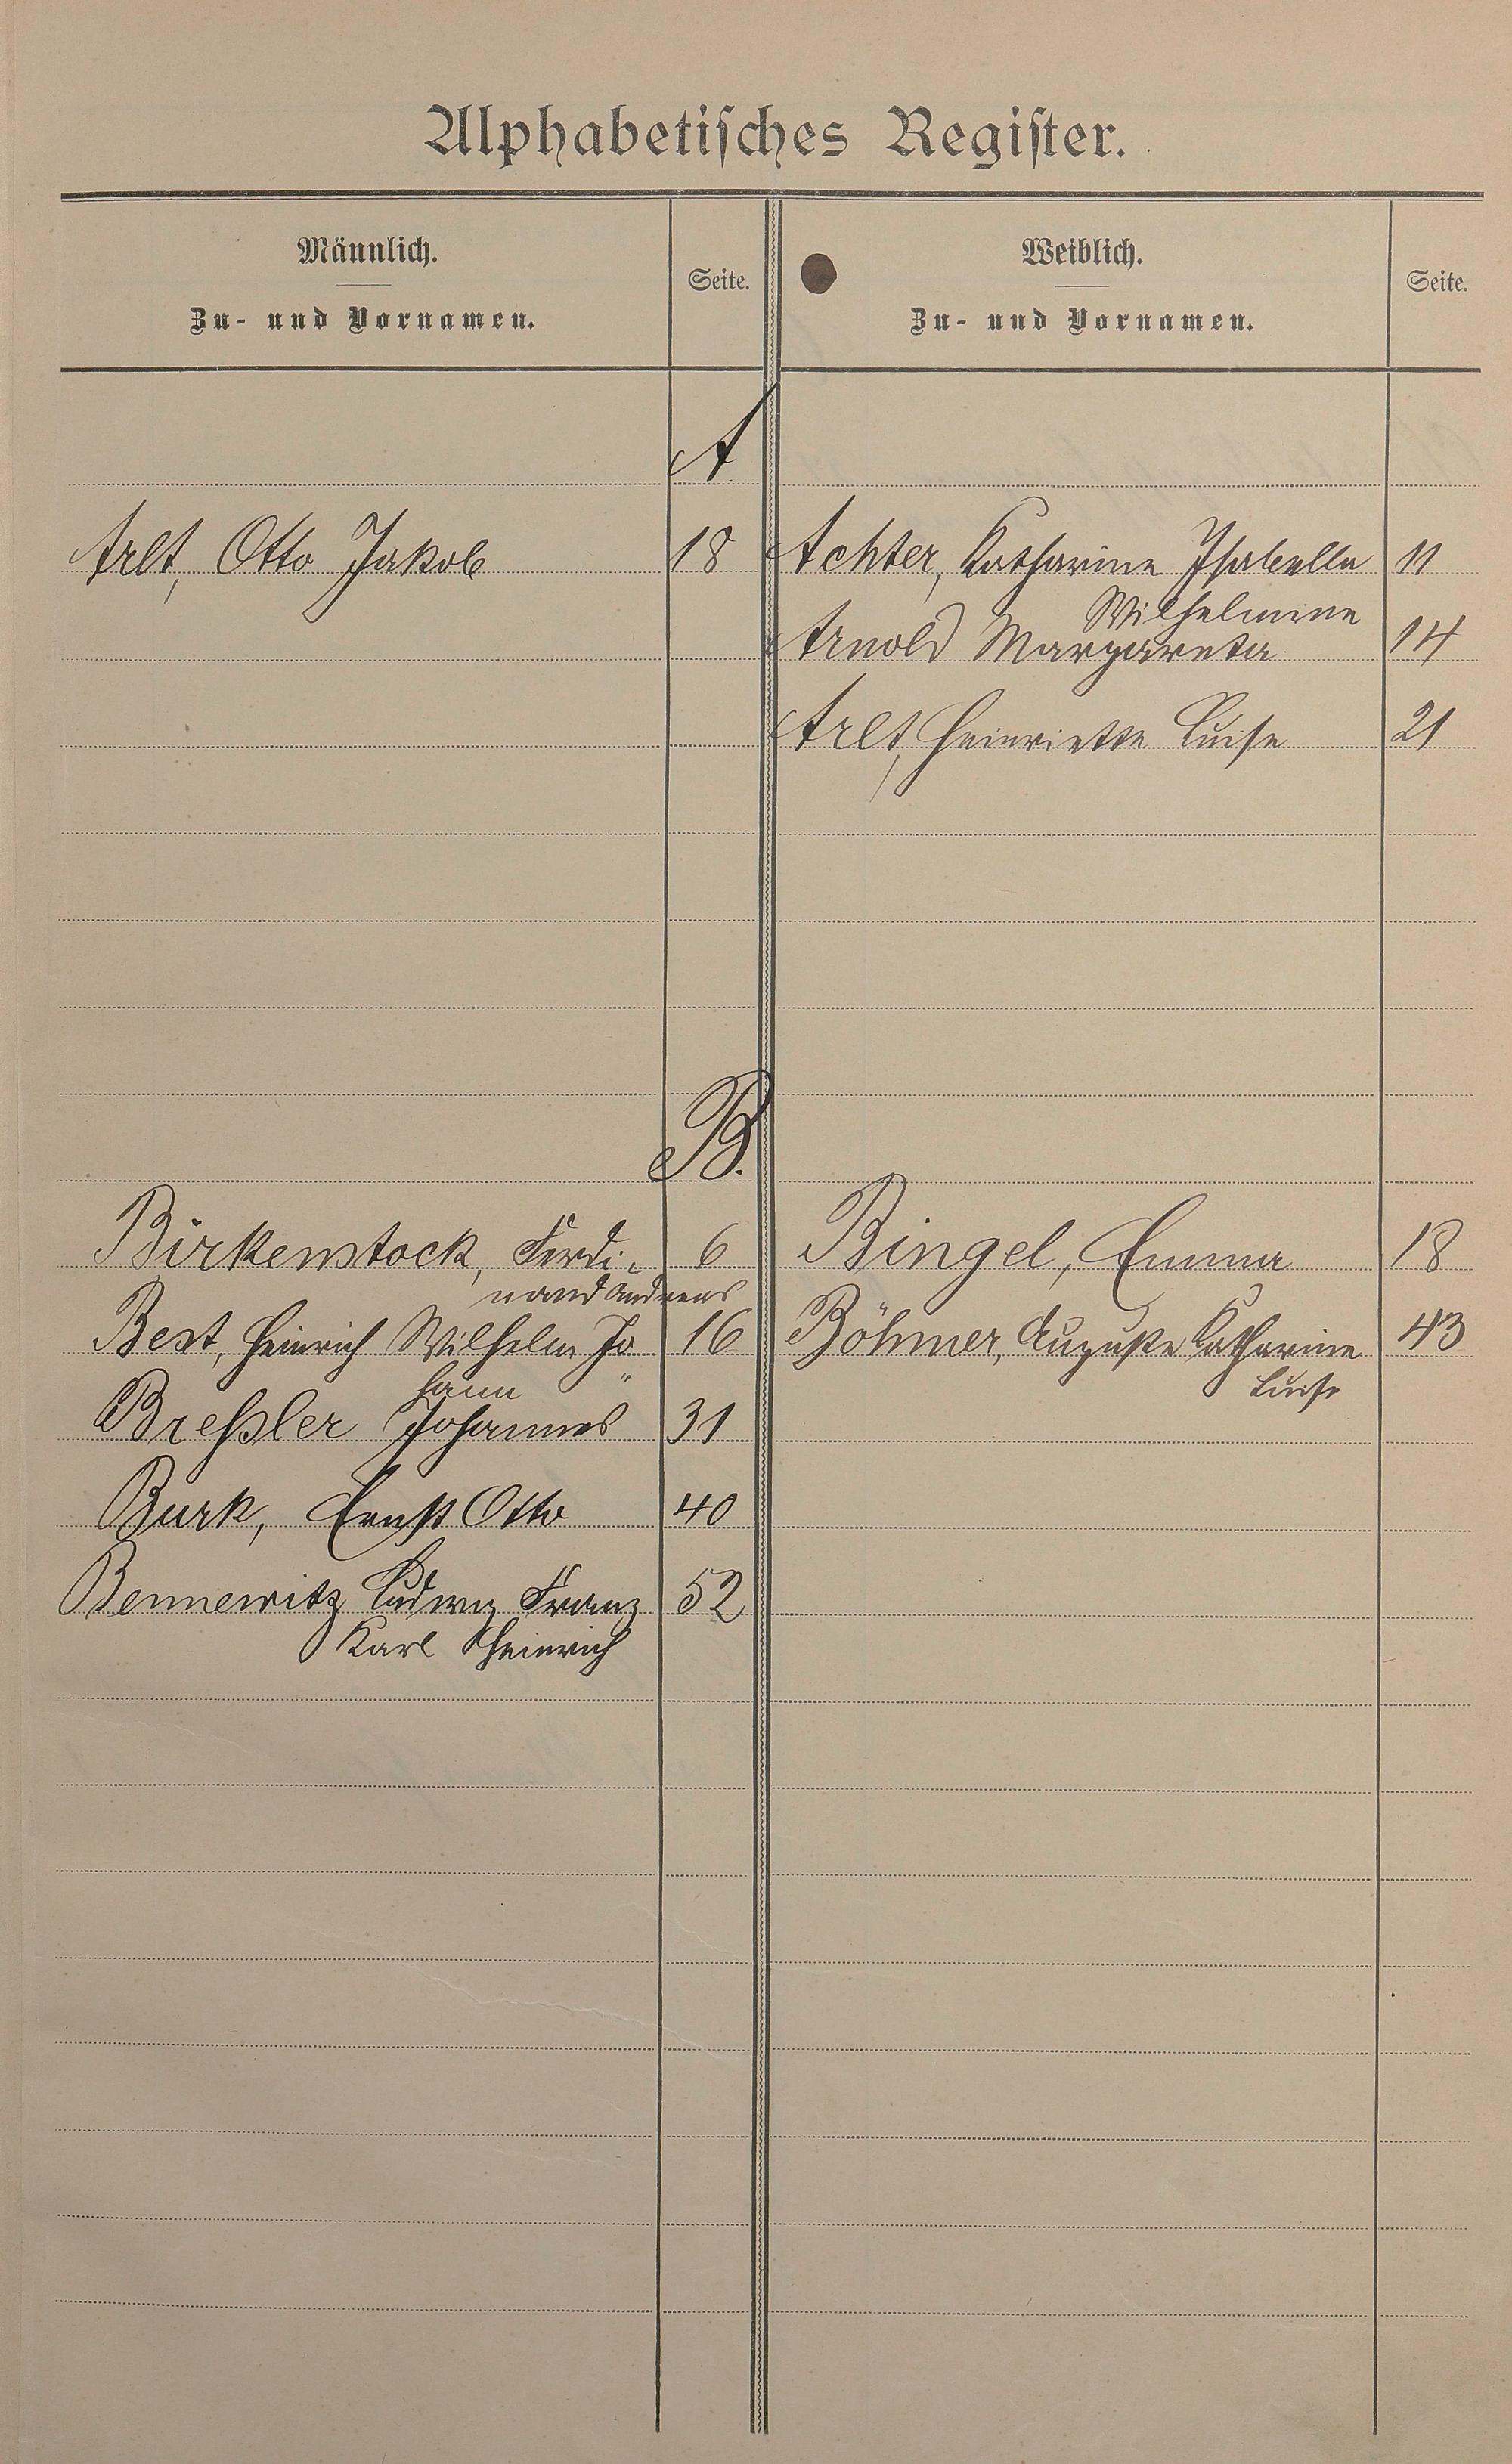 Alphabetisches Register.
Männlich.
Zu- und Vornamen.
Seite.
Weiblich.
Zu- und Vornamen.
Seite.
A.
Arlt, Otto Jakob 18
Achter, Katharine Isabella 11
Wilhelmine
Arnold Margareta 14
Arlt, Henriette Luise 21
B.
Birkenstock, Ferdi- 6
nand Andreas
Best, Heinrich Wilhelm Jo 16
hann "
Breßler Johannes 31
Burk, Ernst Otto 40
Bennewitz Ludwig Franz 52
Karl Heinrich
Bingel, Emma 18
Böhmer, Auguste Katharine 43
Luise